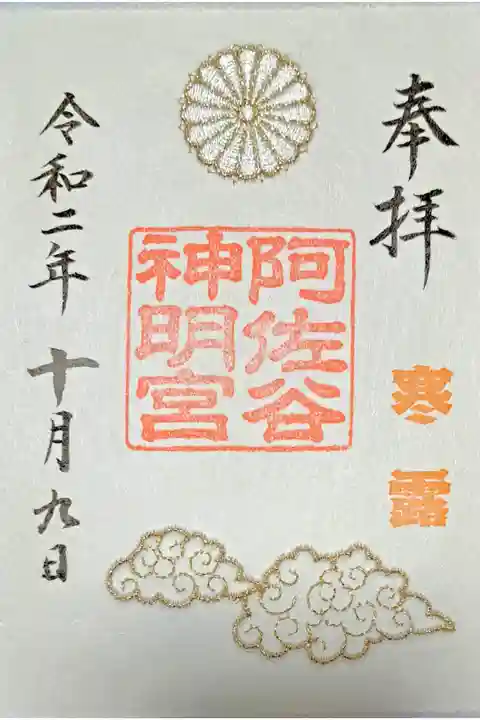 奉拝
寒露
阿佐谷
神明宮
令和二年十月九日